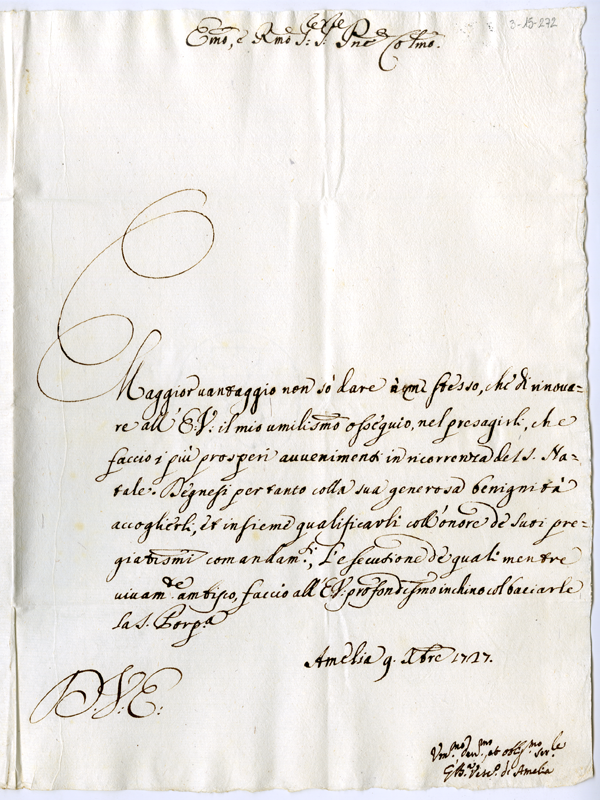 3-15-272
Emo, e Rmo S: S: Pne Colmo.
Maggior vantaggio non sò dare à me stesso, che di rinova-
re all' E: V: il mio umilismo ossequio, nel presagirli, che
faccio i più prosperi auvenimenti in ricorrenza del S. Na-
tale. Degnesi per tanto colla sua generosa benignità
accoglierli, et insieme qualificarli coll'onore de suoi pre-
giatismi comandam.ti, L'esecutione de quali mentre
vivam.te ambisco, faccio all' E: V: profondismo inchino col baciarle
la S. Porpa
Amelia 9. Xbre 1727.
D. V. E:
Um.mo dev.mo, et obblg.mo Ser.le
G: B: Vesc.o di Amelia